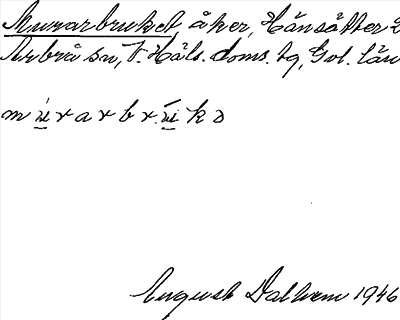 Murarbruket, åker, Hänsätter 2
Arbrå sn, V. Häls. doms. tg, Gvl. län
m ú̲ r a r b r ū̲ k ə
August Dalkvm 1946